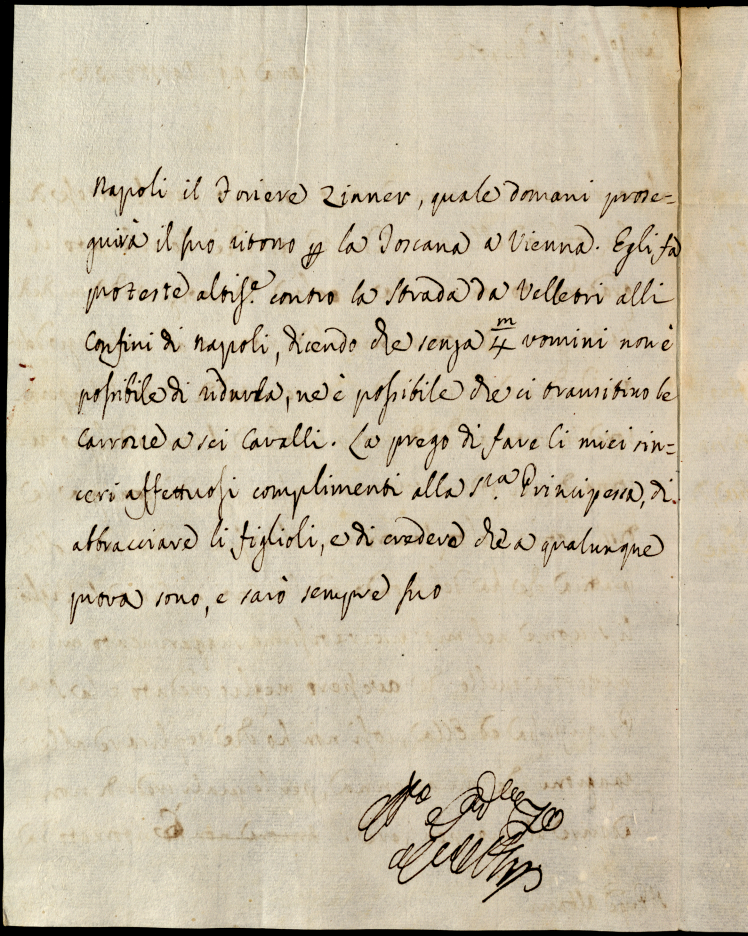 Napoli il Foriere Zinner, quale domani prose=
guirà il suo ritorno per la Toscana a Vienna. Egli fà
proteste altiss.e contro la strada da Velletri alli
Confini di Napoli, dicendo che senza m/4 uomini non è
possibile di ridurla, ne è possibile che ci transitino le
Carrozze a sei Cavalli. La prego di fare li miei sin=
ceri affettuosi complimenti alla S.ra Principessa, di
abbracciare li figlioli, e di credere che a qualunque
prova sono, e sarò sempre suo